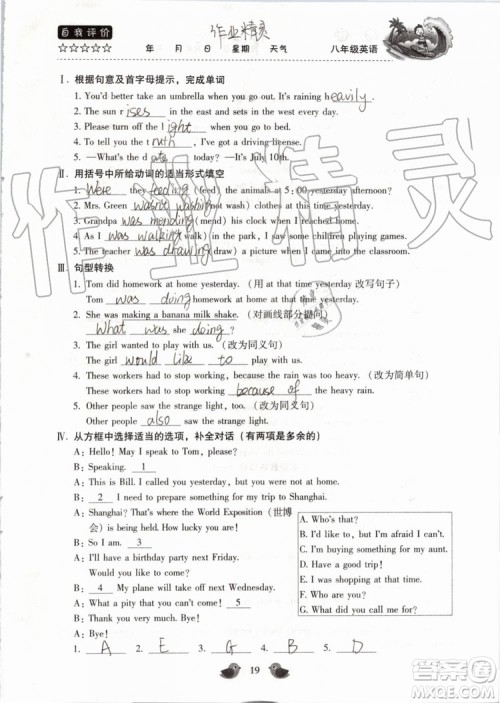 自我评价
作业精灵
☆☆☆☆☆ 年 月 日 星期 天气 八年级英语
Ⅰ. 根据句意及首字母提示，完成单词
1. You'd better take an umbrella when you go out. It's raining heavily.
2. The sun rises in the east and sets in the west every day.
3. Please turn off the light when you go to bed.
4. To tell you the truth, I've got a driving license.
5. —What's the date today? —It's July 10th.
Ⅱ. 用括号中所给动词的适当形式填空
1. Were they feeding (feed) the animals at 5:00 yesterday afternoon?
2. Mrs. Green wasn't washing (not wash) clothes at this time yesterday.
3. Grandpa was mending (mend) his clock when I reached home.
4. As I was walking (walk) in the park, I saw some children playing games.
5. The teacher was drawing (draw) a picture when I came into the classroom.
Ⅲ. 句型转换
1. Tom did homework at home yesterday. (用 at that time yesterday 改写句子)
Tom was doing homework at home at that time yesterday.
2. She was making a banana milk shake. (对画线部分提问)
What was she doing?
3. The girl wanted to play with us. (改为同义句)
The girl would like to play with us.
4. These workers had to stop working, because the rain was too heavy. (改为简单句)
These workers had to stop working because of the heavy rain.
5. Other people saw the strange light, too. (改为同义句)
Other people also saw the strange light.
Ⅳ. 从方框中选择适当的选项，补全对话 (有两项是多余的)
A: Hello! May I speak to Tom, please?
B: Speaking. 1
A: This is Bill. I called you yesterday, but you weren't at home.
B: 2 I need to prepare something for my trip to Shanghai.
A: Shanghai? That's where the World Exposition (世博会) is being held. How lucky you are!
B: So I am. 3
A: I'll have a birthday party next Friday. Would you like to come?
B: 4 My plane will take off next Wednesday.
A: What a pity! You can't come! 5
B: Thank you very much. Bye!
A: Bye!
A. Who's that?
B. I'd like to, but I'm afraid I can't.
C. I was cooking for my aunt.
D. Have a good time!
E. I was shopping at that time.
F. Who are you?
G. What did you call me for?
1. A 2. E 3. G 4. B 5. D
19
作业精灵